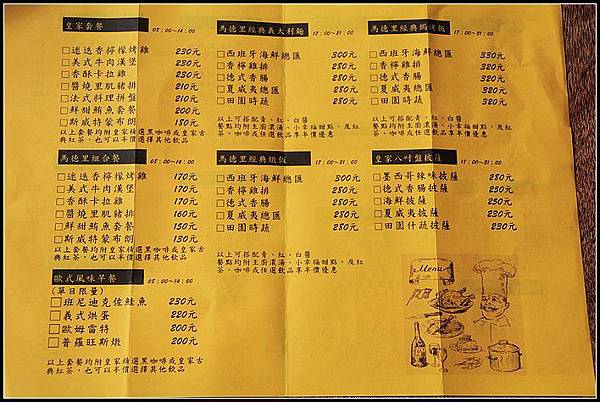 皇家套餐 08:00~14:00
□迷迭香檸檬烤雞 230元
□美式牛肉漢堡 230元
□香酥卡拉雞 230元
□醬燒里肌豬排 210元
□法式料理拼盤 210元
□鮮甜鮪魚套餐 200元
□斯威特蒙布朗 180元
以上套餐均附皇家精選黑咖啡或皇家古
典紅茶,也可以半價選擇其他飲品
馬德里組合餐 08:00~14:00
□迷迭香檸檬烤雞 170元
□美式牛肉漢堡 170元
□香酥卡拉雞 170元
□醬燒里肌豬排 160元
□鮮甜鮪魚套餐 150元
□斯威特蒙布朗 130元
以上套餐均附皇家精選黑咖啡或皇家古
典紅茶,也可以半價選擇其他飲品
歐式風味早餐 08:00~14:00
(單日限量)
□班尼迪克佐鮭魚 230元
□義式烘蛋 220元
□歐姆雷特 200元
□普羅旺斯燉 200元
以上套餐均附皇家精選黑咖啡或皇家古
典紅茶,也可以半價選擇其他飲品
馬德里經典義大利麵 17:00~21:00
□西班牙海鮮總匯 300元
□香檸雞排 280元
□德式香腸 280元
□夏威夷總匯 280元
□田園時蔬 280元
以上可搭配青、紅、白醬
餐點均附主廚濃湯、小幸福甜點,及紅
茶、咖啡或任選飲品享半價優惠
馬德里經典燉飯 17:00~21:00
□西班牙海鮮總匯 300元
□香檸雞排 280元
□德式香腸 280元
□夏威夷總匯 280元
□田園時蔬 280元
以上可搭配青、紅、白醬
餐點均附主廚濃湯、小幸福甜點,及紅
茶、咖啡或任選飲品享半價優惠
馬德里經典焗烤飯 17:00~21:00
□西班牙海鮮總匯 330元
□香檸雞排 320元
□德式香腸 320元
□夏威夷總匯 320元
□田園時蔬 320元
餐點均附主廚濃湯、小幸福甜點,及紅
茶、咖啡或任選飲品享半價優惠
皇家八吋盤披薩 17:00~21:00
□墨西哥辣味披薩 280元
□德式香腸披薩 250元
□海鮮披薩 250元
□夏威夷披薩 230元
□田園什蔬披薩 230元
Menu